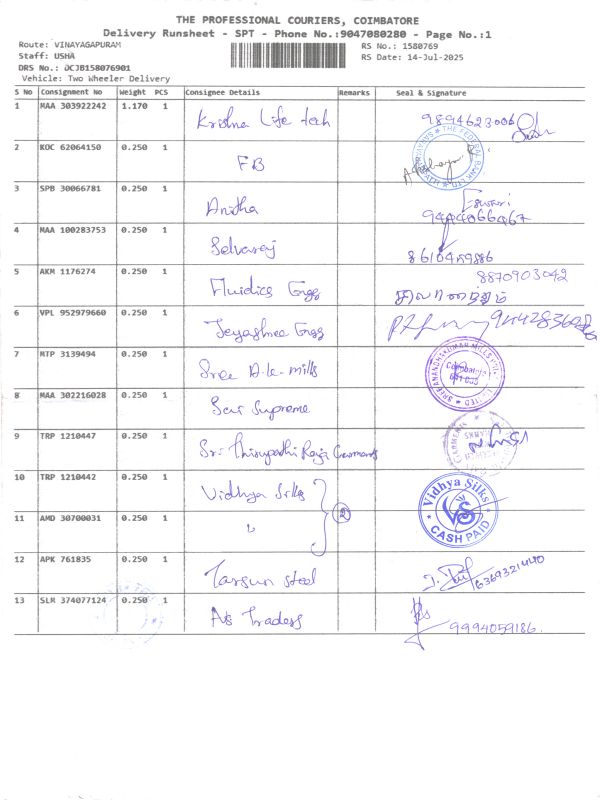 THE PROFESSIONAL COURIERS, COIMBATORE
Delivery Runsheet - SPT - Phone No.:9047080280 - Page No.:1
Route: VINAYAGAPURAM
Staff: USHA
DRS No.: DCJB158076901
Vehicle: Two Wheeler Delivery
RS No.: 1580769
RS Date: 14-Jul-2025
S No Consignment No Weight PCS Consignee Details Remarks Seal & Signature
1 MAA 303922242 1.170 1 Krishna Life tech 9894623006
2 KOC 62064150 0.250 1 FB THE FEDERAL BANK LTD
3 SPB 30066781 0.250 1 Anitha Eswari
4 MAA 100283753 0.250 1 Selvaraj
5 AKM 1176274 0.250 1 Fluidics Engg 8870903042
6 VPL 952979660 0.250 1 Jeyashree Engg
7 MTP 3139494 0.250 1 Sree A.k. mills Coimbatore
8 MAA 302216028 0.250 1 Sai Supreme
9 TRP 1210447 0.250 1 Sri Thirupathi Raja Garments GARMENTS
10 TRP 1210442 0.250 1 Vidhya Silks Vidhya Silks VS CASH PAID
11 AMD 30700031 0.250 1 " 2
12 APK 761835 0.250 1 Tarsun steel 6369321440
13 SLM 374077124 0.250 1 AVS Traders 9994059186.